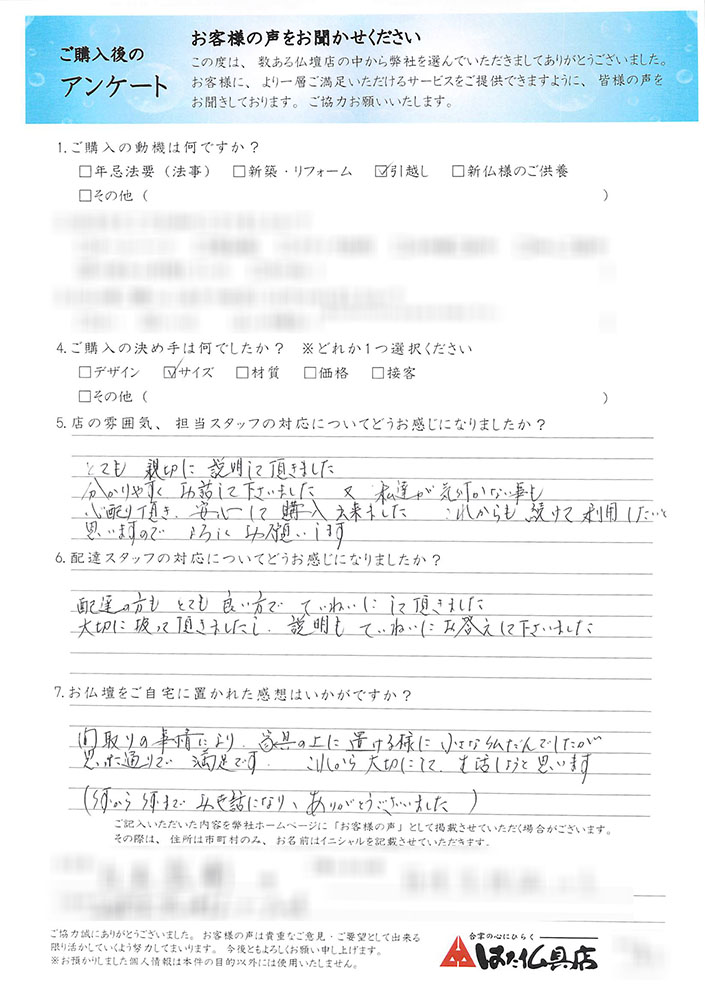 ご購入後の
アンケート
お客様の声をお聞かせください
この度は、数ある仏壇店の中から弊社を選んでいただきましてありがとうございました。
お客様に、より一層ご満足いただけるサービスをご提供できますように、皆様の声を
お聞きしております。ご協力お願いいたします。
1.ご購入の動機は何ですか？
□年忌法要（法事） □新築・リフォーム ☑引越し □新仏様のご供養
□その他（ ）
4.ご購入の決め手は何でしたか？ ※どれか1つ選択ください
□デザイン ☑サイズ □材質 □価格 □接客
□その他（ ）
5.店の雰囲気、担当スタッフの対応についてどうお感じになりましたか？
とても 親切に 説明して頂きました
分かりやすく お話して下さいました 又 私達が気付かない事も
心配り頂き、安心して 購入出来ました これからも 続けて利用したいと
思いますので よろしくお願いします
6.配達スタッフの対応についてどうお感じになりましたか？
配達の方も とても 良い方で ていねいにして頂きました
大切に扱って頂きましたし、説明も ていねいにお答えして下さいました
7.お仏壇をご自宅に置かれた感想はいかがですか？
間取りの事情により、家具の上に 置ける様に 小さな仏だんでしたが
思った通りで 満足です。 これから大切にして 生活しようと思います
（何から何まで お世話になり、ありがとうございました）
ご記入いただいた内容を弊社ホームページに「お客様の声」として掲載させていただく場合がございます。
その際は、住所は市町村のみ、お名前はイニシャルを記載させていただきます。
ご協力誠にありがとうございました。お客様の声は貴重なご意見・ご要望として出来る
限り活かしていくよう努力してまいります。今後ともよろしくお願い申し上げます。
※お預かりしました個人情報は本件の目的以外には使用いたしません。
合掌の心にひらく
はた仏具店